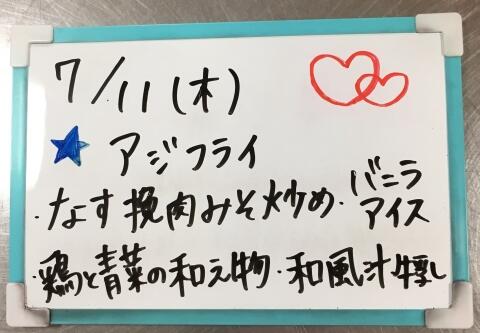 7/11(木)
アジフライ
・なす挽肉みそ炒め・バニラアイス
・鶏と青菜の和え物・和風汁 牛乳